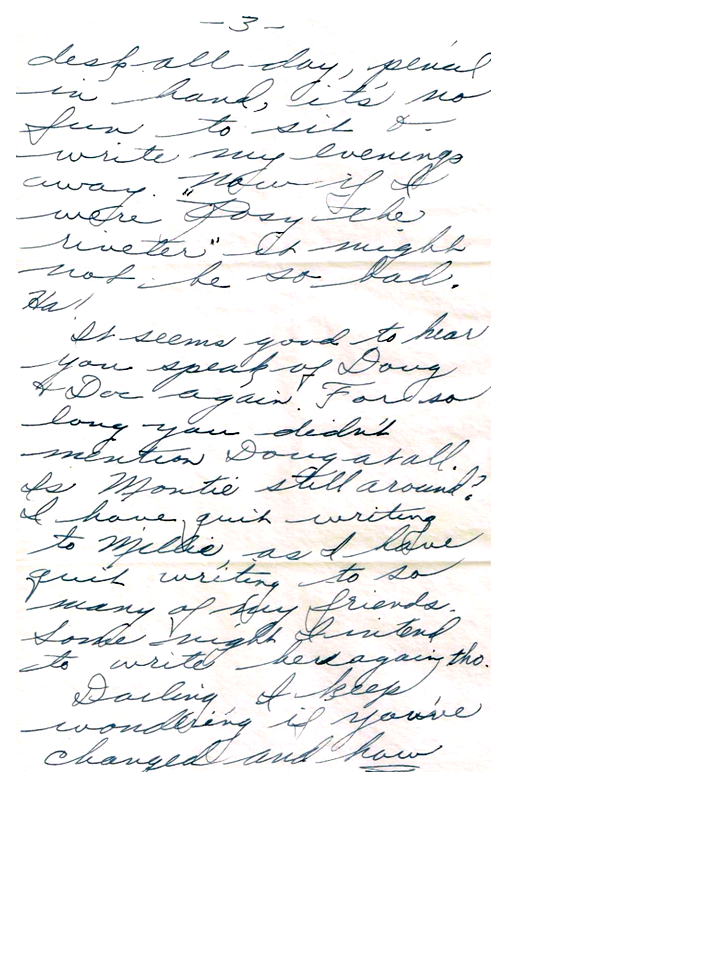 -3-
desk all day, pencil
in hand, it's no
fun to sit &
write my evenings
away. Now if I
were "Rosy the
riveter" it might
not be so bad.
Ha!
It seems good to hear
you speak of Doug
& Doc again. For so
long you didn't
mention Doug at all.
Is Montie still around?
I have quit writing
to Millie, as I have
quit writing to so
many of my friends.
Some night I intend
to write her again, tho.
Darling I keep
wondering if you've
changed and how